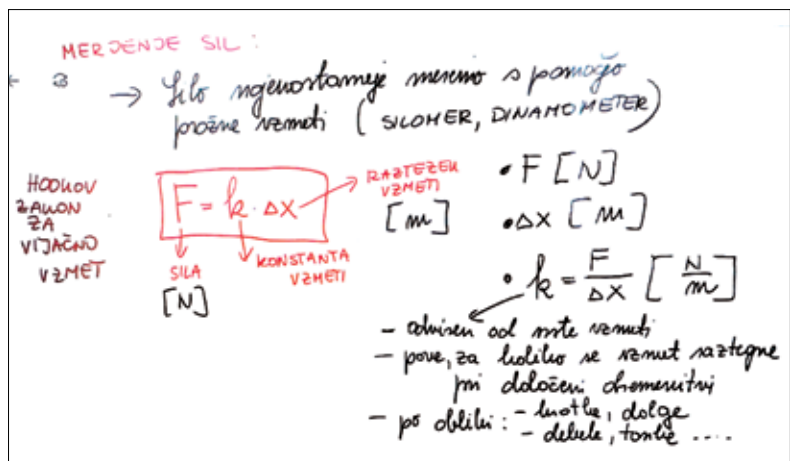 MERJENJE SIL:
→ Silo najenostavneje merimo s pomočjo
prožne vzmeti (SILOMER, DINAMOMETER)
HOOKOV
ZAKON
ZA
VIJAČNO
VZMET
F = k · Δx
SILA
[N]
KONSTANTA
VZMETI
RAZTEZEK
VZMETI
[m]
• F [N]
• Δx [m]
• k = F/Δx [N/m]
- odvisen od vrste vzmeti
- pove, za koliko se vzmet raztegne
pri določeni obremenitvi
- po obliki: - kratke, dolge
- debele, tanke ....